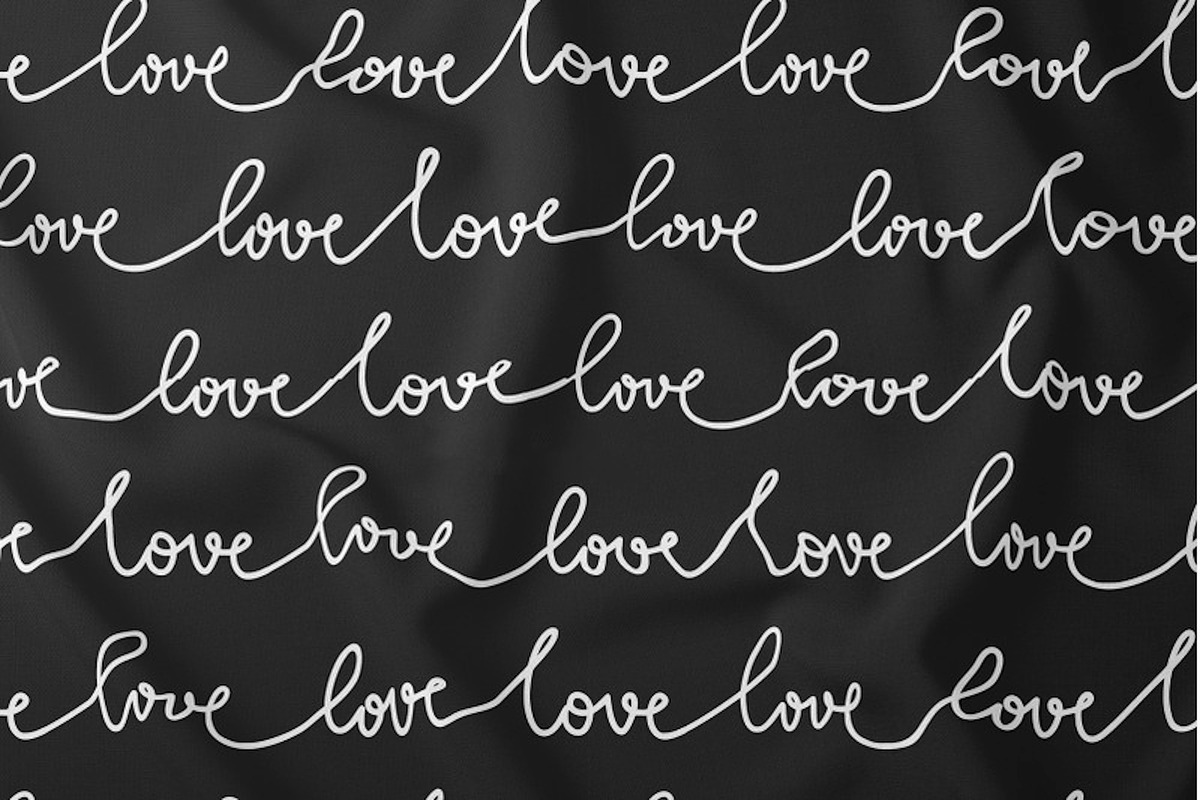 e love love love love love l
love love love love love love
ve love love love love love
e love love love love love l
e love love love love love l